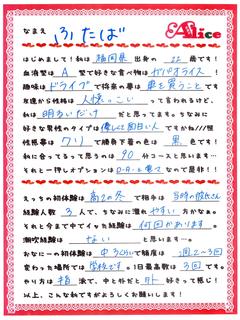 なまえ
ふたば
Alice
はじめまして!私は 福岡県 出身の 22 歳です!
血液型は A 型で好きな食べ物は ガパオライス!
趣味は ドライブ で将来の夢は 車を買うこと です
友達から性格は 人懐っこい って言われるけど、
私は 明るいだけ だと思ってます。ちなみに
好きな男性のタイプは 優しくて面白い人 ですかね///
性感帯は クリ で勝負下着の色は 黒 色です!
私に会ってるって思うのは 90 分コースと思います…
それと一押しオプションは なので是非!!
えっちの初体験は 高2の冬 で相手は 当時の彼氏さん
経験人数 3 人で、ちなみに濡れ やすい 方かなぁ。
それと今まで中でイッた経験は 何回かあります。
潮吹経験は ない と思います…。
おなにーの初体験は 中3くらい で頻度は 週2~3回
変わった場所では 学校です。1日最高数は 3 回 です。
やり方は 指 派で、中と外だと 外 好きって感じ!
以上、こんな私ですがよろしくお願いします!